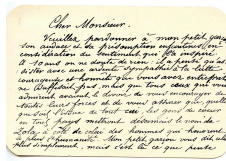 Cher Monsieur.
Veuillez pardonner à mon petit garçon
son audace et sa présomption enfantines (en
considération du sentiment qui l'a inspiré
A 10 ans on ne doute de rien : il a pensé qu'as
sister avec une ardente sympathie à la lutte
courageuse et honnête que vous avez entreprise
ne suffisait pas, mais que tous ceux qui vous
admirent avaient le devoir de vous encourager de
toutes leurs forces et de vous attester que, quelle
que soit l'issue de tout les gens de cœur
de tout pays mettront désormais le nom de
Zola à côté de celui des hommes qui honorent
le plus l'humanité. Mon petit garçon vous dit cela
plus simplement, mais c'est là ce que pense